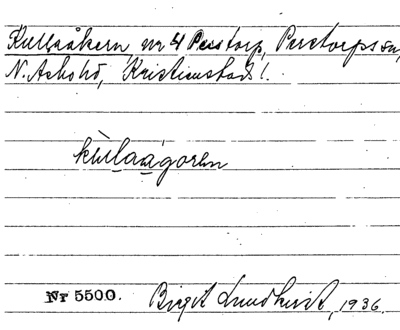 Kullaåkern nr 4 Perstorp, Perstorps sn,
N. Åsbo hd, Kristianstads l.
kùlaágoren
Nr 5500. Birgit Lundkvist, 1936.